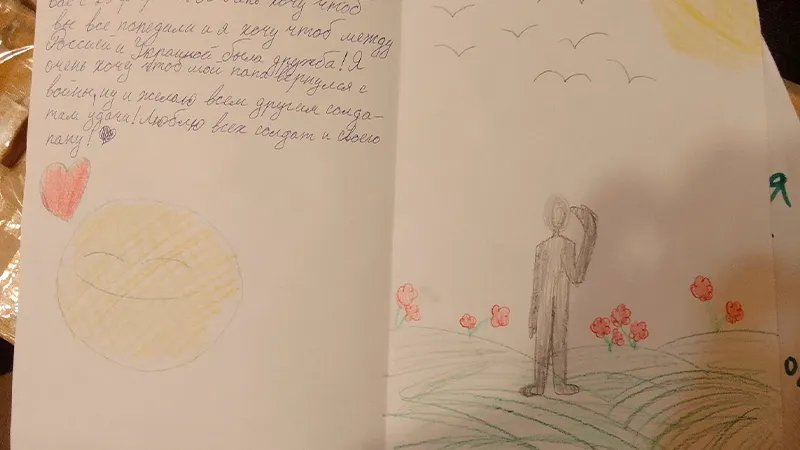 хочу чтоб
вы все попедили и я хочу чтоб между
Россией и Украиной была дружба! Я
очень хочу чтоб мой папа вернулся с
войны, ну и желаю всем другим солда-
там удачи! Люблю всех солдат и своего
папу!
Я